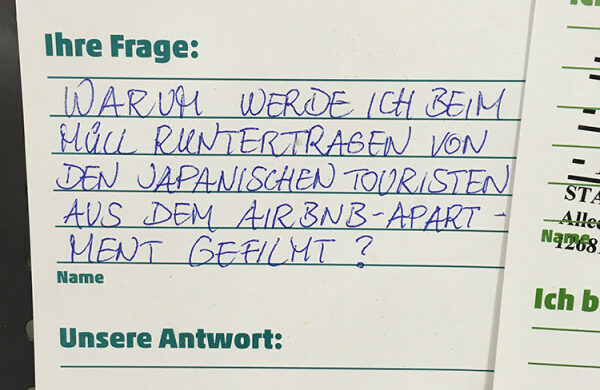 Ihre Frage:
WARUM WERDE ICH BEIM
MÜLL RUNTERTRAGEN VON
DEN JAPANISCHEN TOURISTEN
AUS DEM AIRBNB-APART-
MENT GEFILMT?
Name
Unsere Antwort:
STA
Allee
Name
12681
Ich b